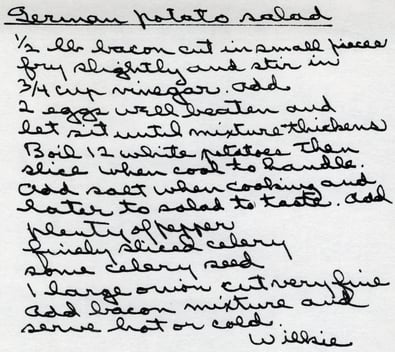 German potato salad
1/2 lb bacon cut in small pieces
fry slightly and stir in
3/4 cup vinegar. add
2 eggs well beaten and
let sit until mixture thickens
Boil 12 white potatoes then
slice when cool to handle.
add salt when cooking and
later to salad to taste. add
plenty of pepper
finely sliced celery
some celery seed
1 large onion cut very fine
add bacon mixture and
serve hot or cold.
Wilkie